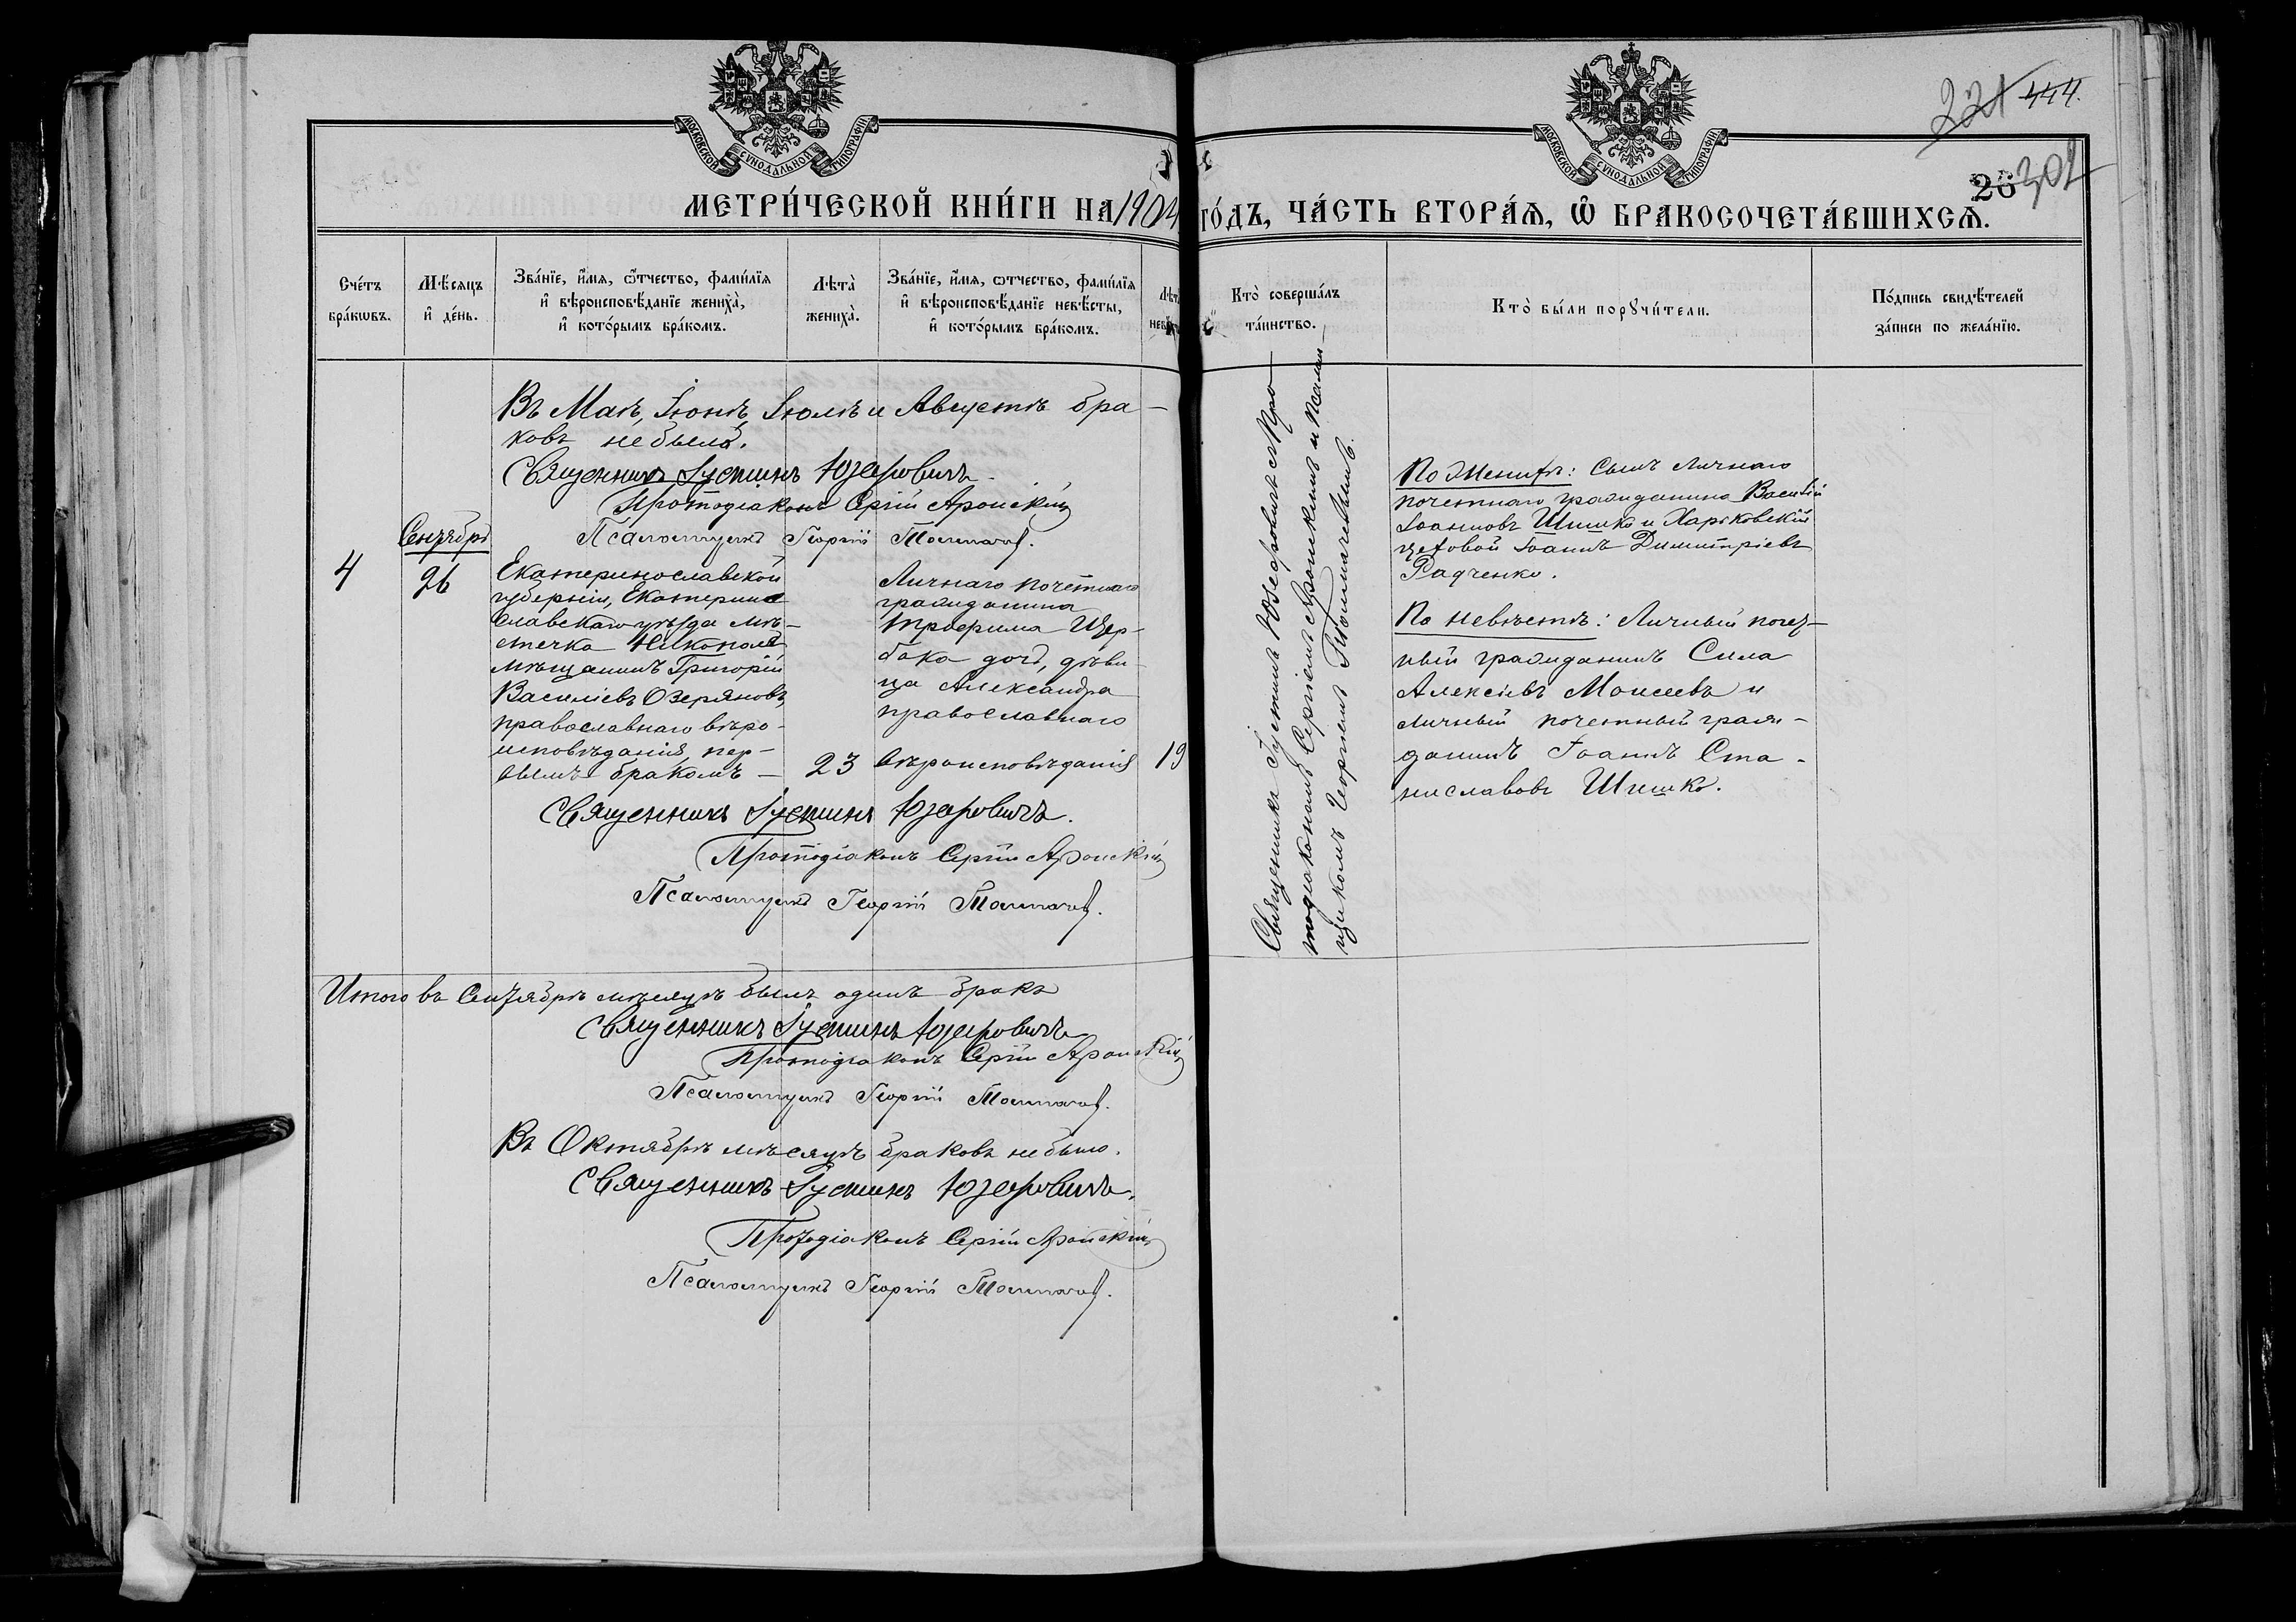 МОСКОВСКОЙ СѴНОДАЛЬНОЙ ТИПОГРАФІИ
МОСКОВСКОЙ СѴНОДАЛЬНОЙ ТИПОГРАФІИ
221 444.
26 302
МЕТРИ́ЧЕСКОЙ КНИ́ГИ НА 1904 ГО́ДЪ, ЧА́СТЬ ВТОРА́Я, Ѿ БРАКОСОЧЕТА́ВШИХСЯ.
Сче́тъ бра́кѡвъ.
Мѣ́сяцъ и҆ де́нь.
Зва́нїе, и҆́мя, ѻ҆́тчество, фами́лїя
и҆ вѣроисповѣ́данїе жениха̀,
и҆ кото́рымъ бра́комъ.
Лѣта̀ жениха̀.
Зва́нїе, и҆́мя, ѻ҆́тчество, фами́лїя
и҆ вѣроисповѣ́данїе невѣ́сты,
и҆ кото́рымъ бра́комъ.
Кто̀ соверша́лъ
та́инство.
Кто̀ бы́ли порꙋчи́тели.
По́дпись свидѣ́телей
за́писи по жела́нїю.
Въ Маѣ, Іюнѣ, Іюлѣ и Августѣ бра-
ковъ не было.
Священникъ Іустинъ Юзефовичъ.
Протодіаконъ Сергій Аронскій
Псаломщикъ Георгій Толмачев.
Сентябрь
4
26
Екатеринославской
губерніи, Екатерино
славскаго уѣзда мѣ-
стечка Никополя
мѣщанинъ Григорій
Василіевъ Озеряновъ,
православнаго вѣро-
исповѣданія, пер-
вымъ бракомъ —
23
Личнаго почетнаго
гражданина
Трофима Щер-
бака дочь, дѣви-
ца Александра
православнаго
вѣроисповѣданія
19
Священникъ Іустинъ Юзефовичъ.
Протодіаконъ Сергій Аронскій
Псаломщикъ Георгій Толмачев.
Священникъ Іустинъ Юзефовичъ съ Про-
тодіакономъ Сергіемъ Аронскимъ и псалом-
щикомъ Георгіемъ Толмачевымъ.
По Женихѣ: сынъ личнаго
почетнаго гражданина Василій
Іоанновъ Шишко и Харьковскій
цеховой Іоаннъ Димитріевъ
Радченко.
По невѣстѣ: Личный почет-
ный гражданинъ Сила
Алексіевъ Моисеевъ и
личный почетный граж-
данинъ Іоаннъ Ста-
ниславовъ Шишко.
Итого въ Сентябрѣ мѣсяцѣ былъ одинъ бракъ
Священникъ Іустинъ Юзефовичъ
Протодіаконъ Сергій Аронскій
Псаломщикъ Георгій Толмачев.
Въ Октябрѣ мѣсяцѣ браковъ не было.
Священникъ Іустинъ Юзефовичъ.
Протодіаконъ Сергій Аронскій
Псаломщикъ Георгій Толмачев.